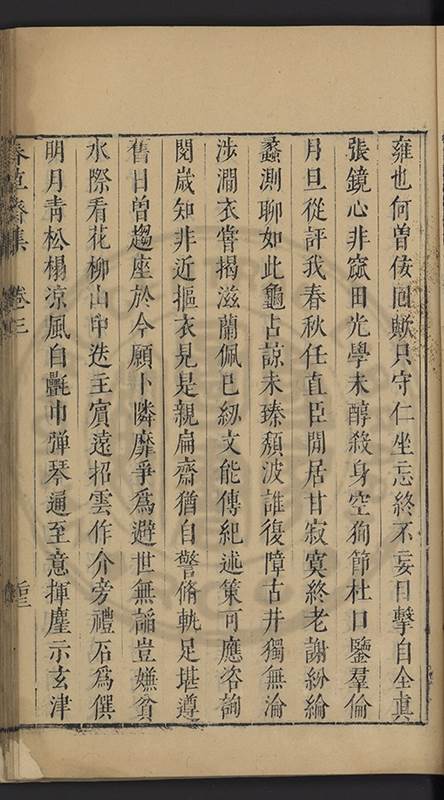 雍也何曾佞回歟只守仁坐忘終不妄目擊自全眞
張鏡心非窳田光學未醇殺身空徇節杜口鑒羣倫
月旦從評我春秋任直臣閒居甘寂寞終老謝紛綸
蠡測聊如此龜占諒未臻頹波誰復障古井獨無淪
涉澗衣嘗揭滋蘭佩已紉文能傳紀述策可應咨詢
閱歲知非近摳衣見是親扁齋猶自警脩軌足堪遵
舊日曾趨座於今願卜隣靡爭爲避世無謟豈嫌貧
水際看花柳山中迭主賓遠招雲作介旁禮石爲僎
明月靑松榻凉風白氎巾彈琴遍至意揮麈示玄津
春草齋集 卷三